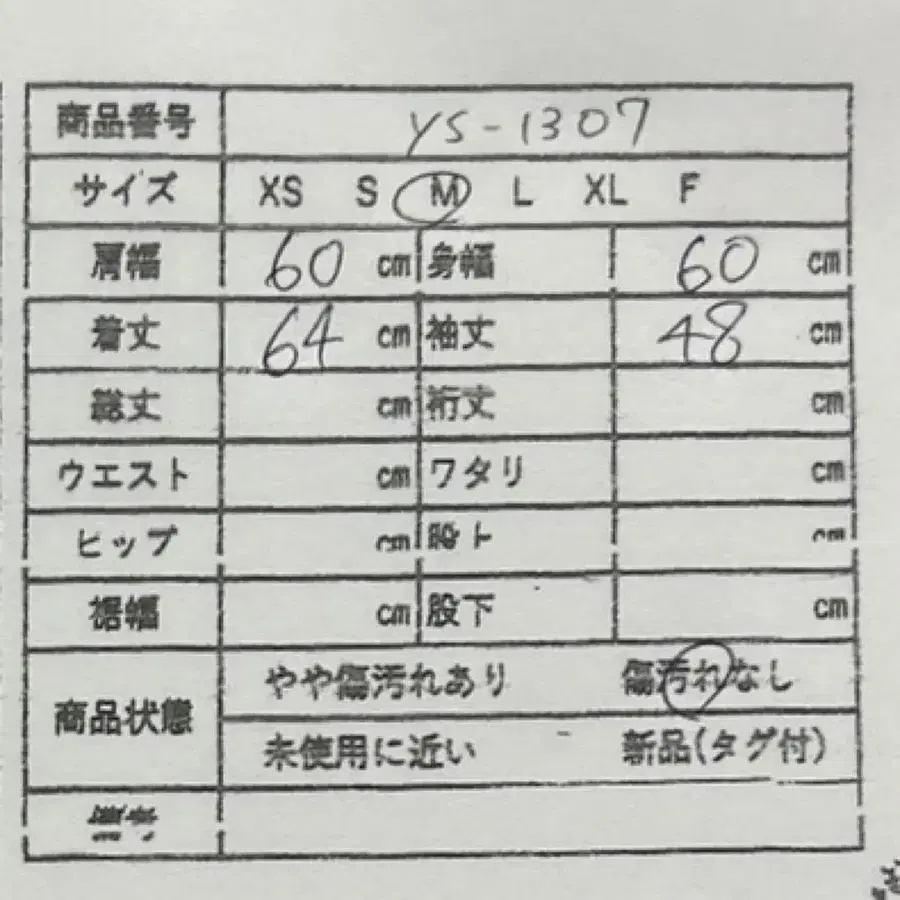 商品番号 YS-1307
サイズ XS S M L XL F
肩幅 60 cm 身幅 60 cm
着丈 64 cm 袖丈 48 cm
総丈 cm 裄丈 cm
ウエスト cm ワタリ cm
ヒップ cm 股上 cm
裾幅 cm 股下 cm
商品状態 やや傷汚れあり 傷汚れなし
未使用に近い 新品(タグ付)